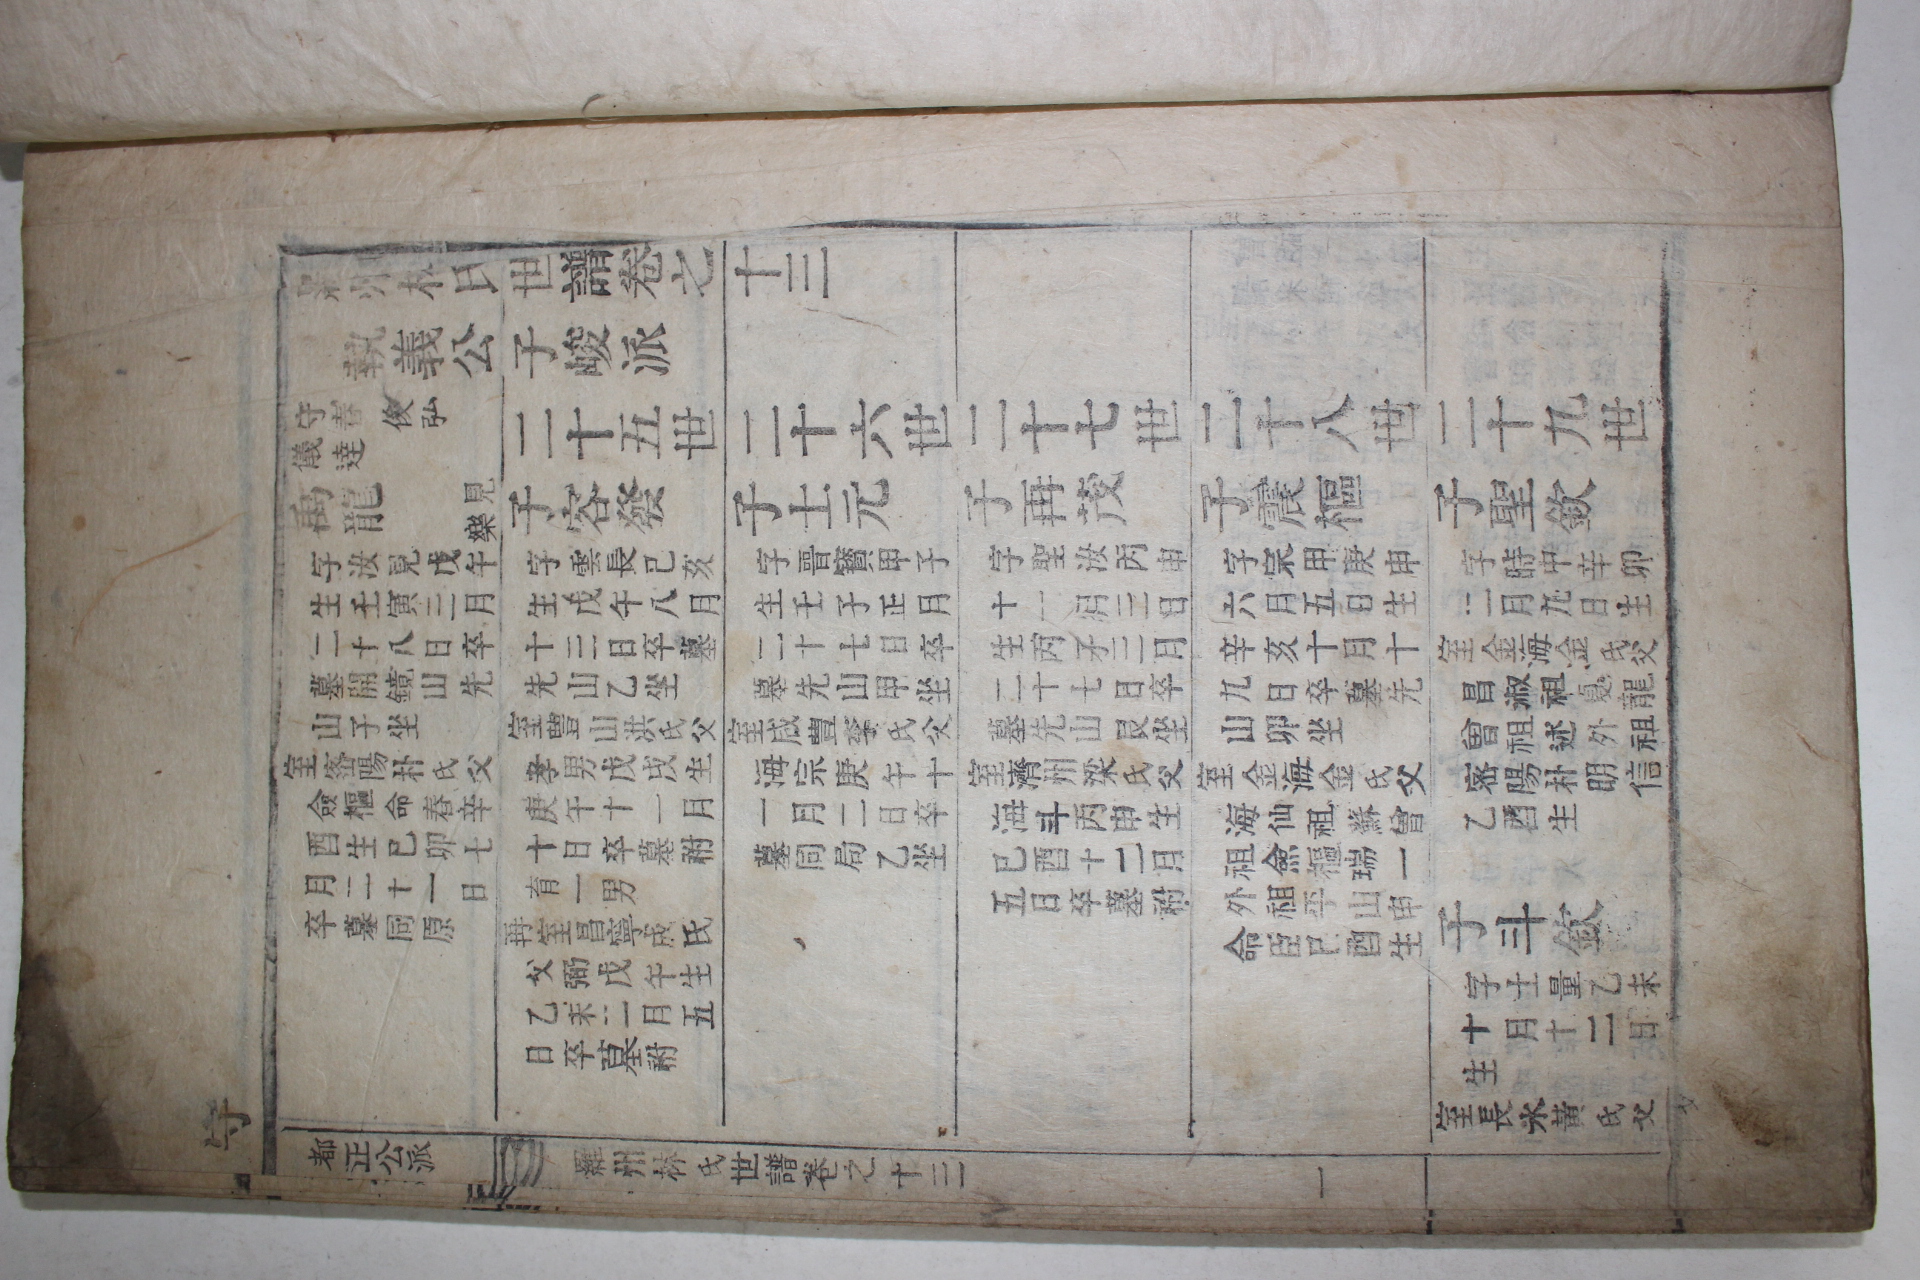 羅州林氏世譜卷之十三
執義公子峻派
守善
儀達
俊弘
禹龍
見
樂
字汝見戊午
生壬寅三月
二十八日卒
墓開鏡山先
山子坐
室密陽朴氏父
僉樞命春辛
酉生己卯七
月二十一日
卒墓同原
二十五世
子容發
字雲長己亥
生戊午八月
十三日卒墓
先山乙坐
室豊山洪氏父
孝男戊戌生
庚午十一月
十日卒墓祔
育一男
再室昌寧成氏
父弼戊午生
乙未二月五
日卒墓祔
二十六世
子士元
字晋甲子
生壬子正月
二十七日卒
墓先山甲坐
室咸豊李氏父
海宗庚午十
一月二日卒
墓同局乙坐
二十七世
子再茂
字聖汝丙申
十一月三日
生丙子三月
二十七日卒
墓先山艮坐
室濟州梁氏父
海斗丙申生
己酉十二月
五日卒墓祔
二十八世
子震樞
字宗甲庚申
六月五日生
辛亥十月十
九日卒墓先
山卯坐
室金海金氏父
海仙祖蘇曾
祖僉樞瑞一
外祖平山申
命臣己酉生
二十九世
子聖欽
字時中辛卯
二月九日生
室金海金氏父
昌淑祖夏龍
曾祖述外祖
密陽朴明信
乙酉生
子斗欽
字士量乙未
十月十二日
生
室長水黃氏父
都正公派
羅州林氏世譜卷之十三
一
守